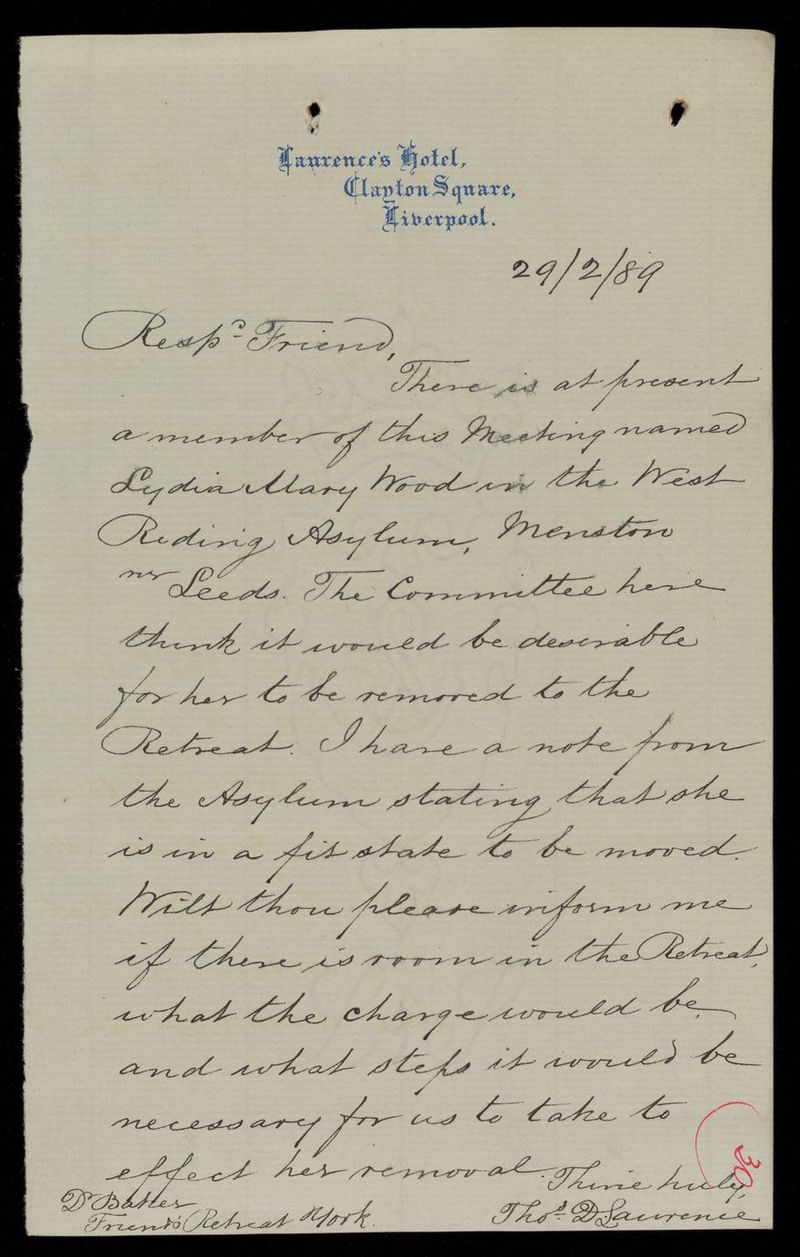 Laurence's Hotel,
Clayton Square,
Liverpool.
29/2/89
Respd Friend,
There is at present
a member of this Meeting named
Lydia Mary Wood in the West
Riding Asylum, Menston
nr Leeds. The Committee here
think it would be desirable
for her to be removed to the
Retreat. I have a note from
the Asylum stating that she
is in a fit state to be moved.
Wilt thou please inform me
if there is room in the Retreat,
what the charge would be,
and what steps it would be
necessary for us to take to
effect her removal.
Thine truly,
Thos. D Laurence
Dr Baker
Friends' Retreat York.
30